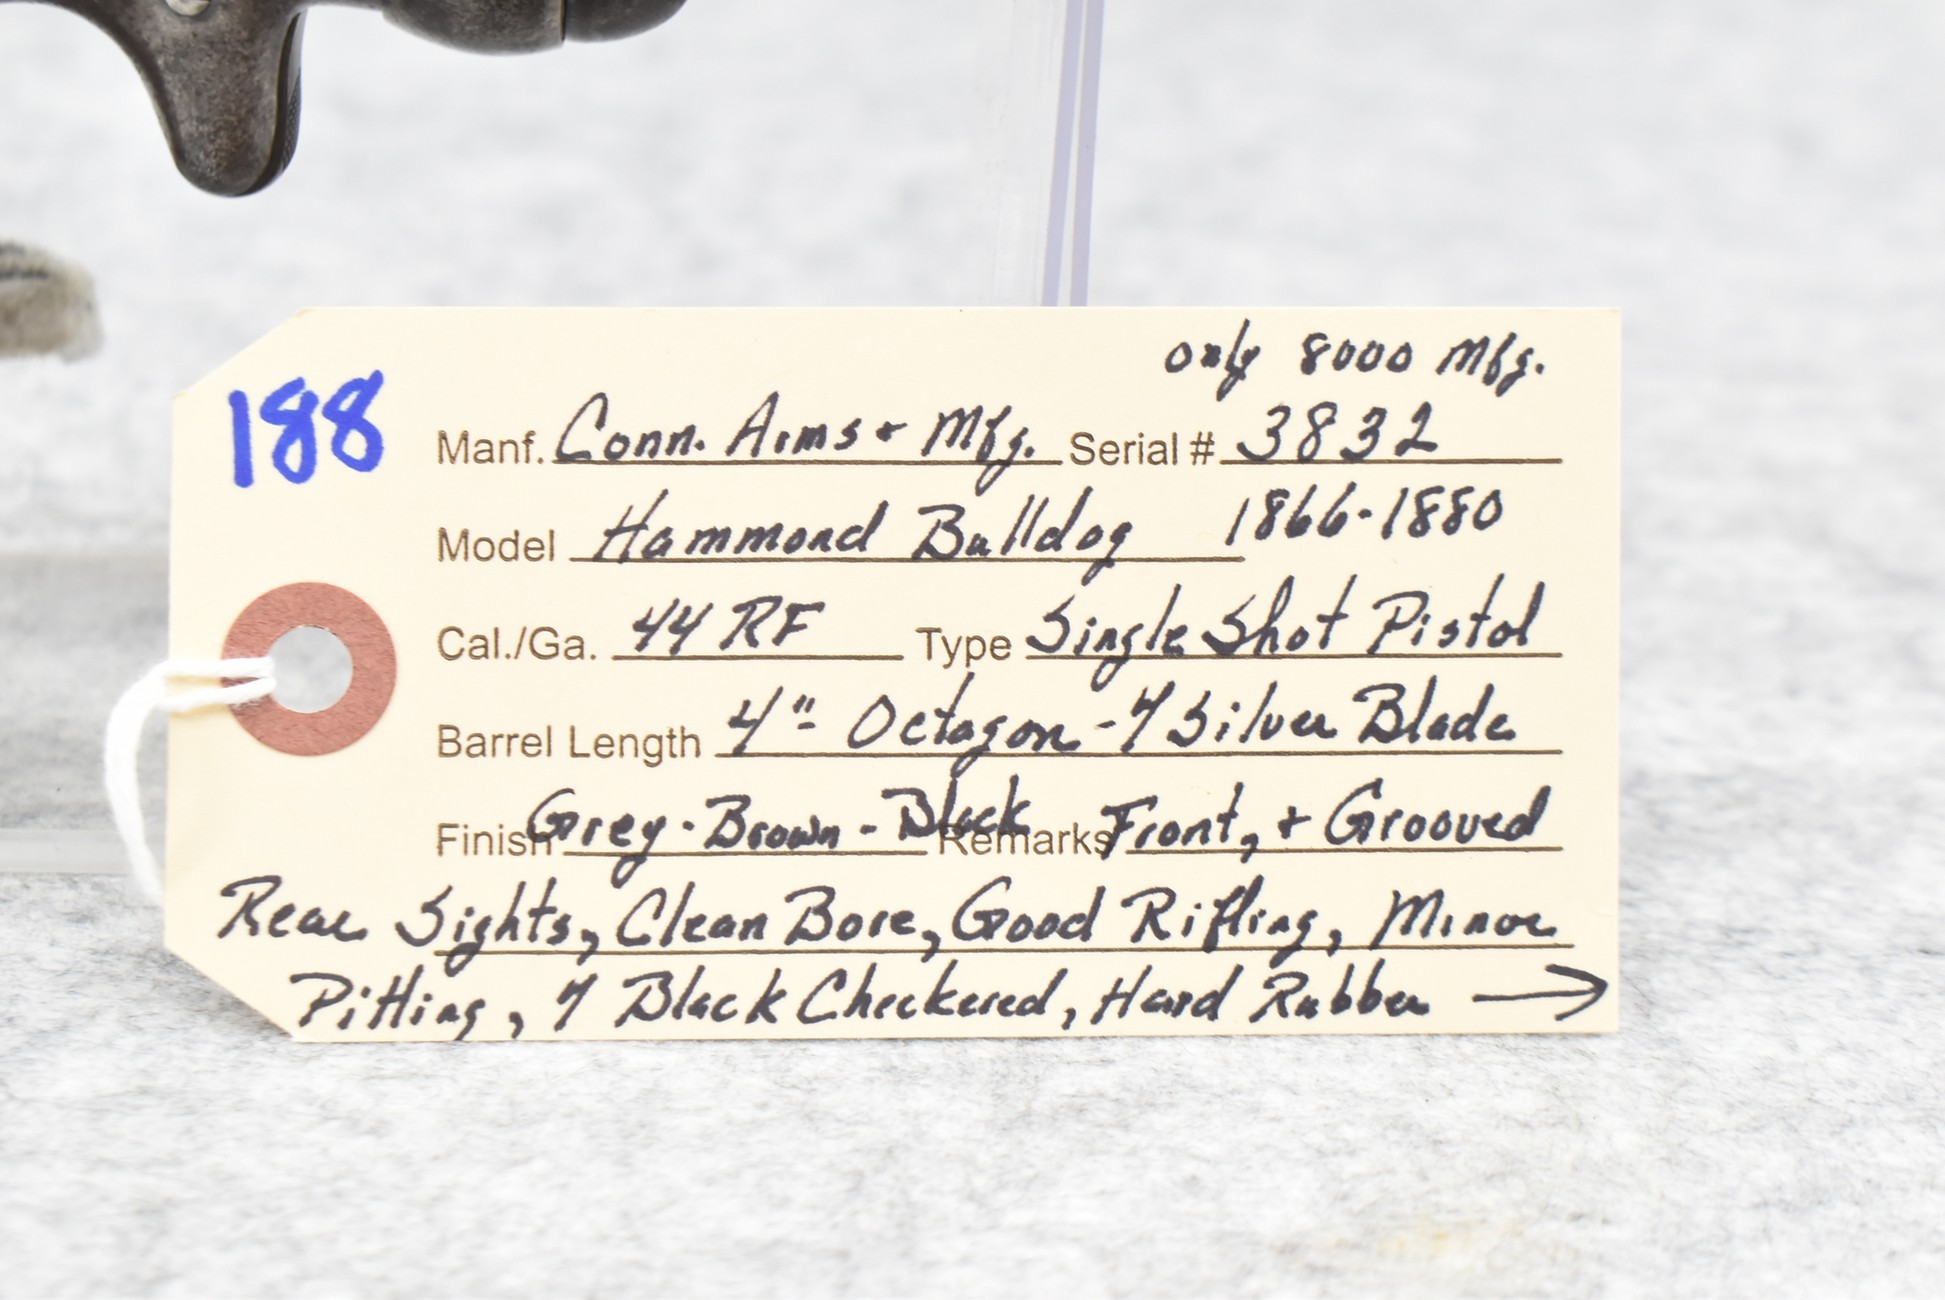 only 8000 Mfg.
188
Manf. Conn. Arms + Mfg. Serial # 3832
Model Hammond Bulldog 1866-1880
Cal./Ga. 44 RF Type Single Shot Pistol
Barrel Length 4"- Octagon - 7 Silver Blade
Finish Grey - Brown - Black Remarks Front, + Grooved
Rear Sights, Clean Bore, Good Rifling, Minor
Pitting, 7 Black Checkered, Hard Rubber →